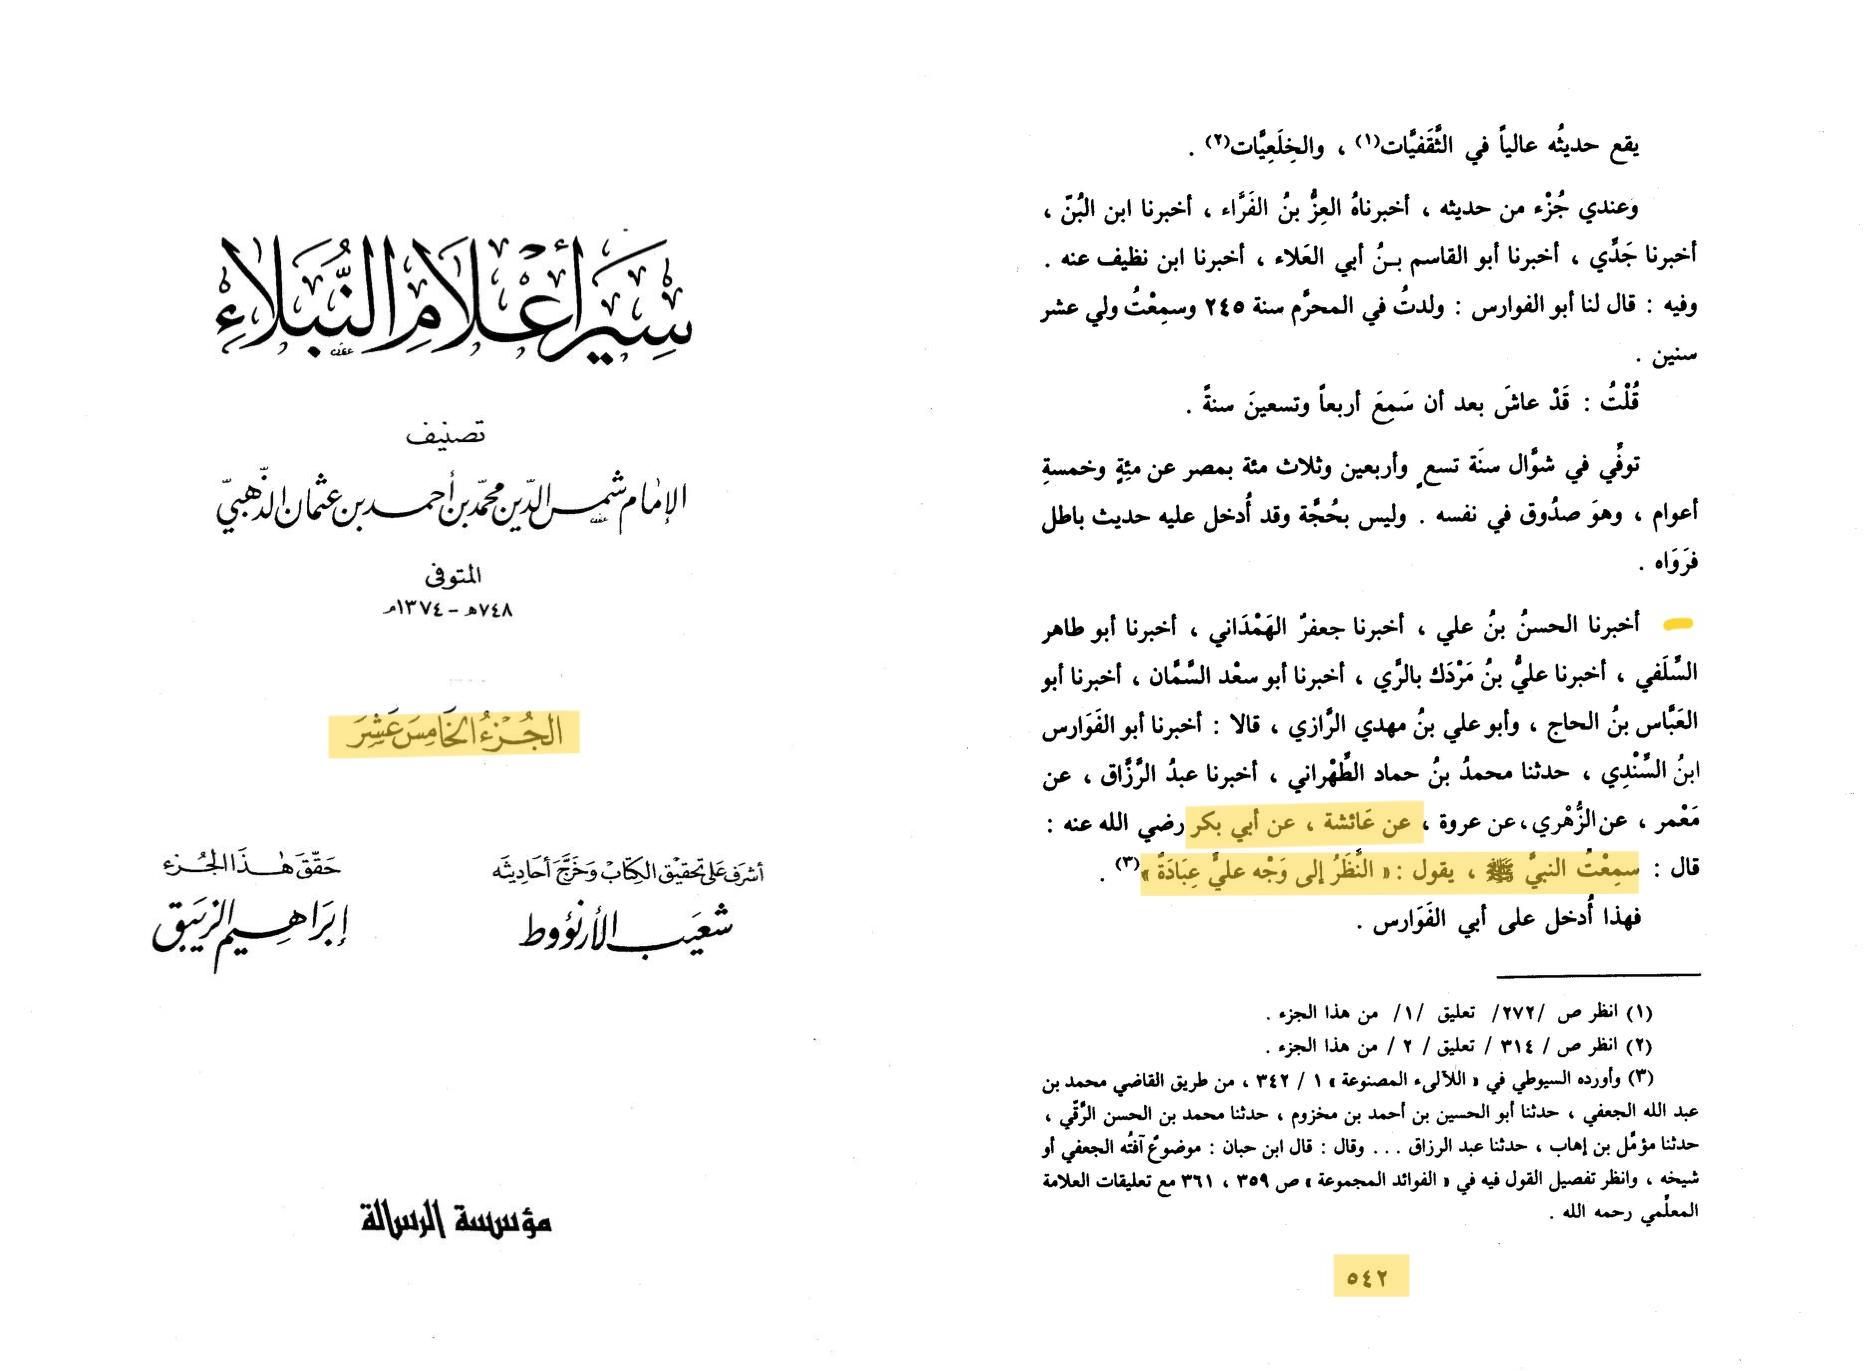 سِيَرُ أَعْلَامِ النُّبَلَاءِ
تصنيف
الإمام شمس الدّين محمّد بن أحمد بن عثمان الذّهبيّ
المتوفى
٧٤٨هـ - ١٣٧٤م
الجُزْءُ الخَامِسَ عَشَرَ
أشرف على تحقيق الكتاب وخَرَّجَ أحَاديثه
شعَيب الأرنؤوط
حَقّقَ هٰذَا الجُزء
إبراهيم الزيبق
مؤسسة الرسالة
يقع حديثُه عالياً في الثَّقَفيَّات(١) ، والخِلَعِيَّات(٢) .
وعندي جُزْء من حديثه ، أخبرناهُ العِزُّ بنُ الفَرَّاء ، أخبرنا ابن البُنّ ،
أخبرنا جَدِّي ، أخبرنا أبو القاسم بـنُ أبي العَلاء ، أخبرنا ابن نظيف عنه .
وفيه : قال لنا أبو الفوارس : ولدتُ في المحرَّم سنة ٢٤٥ وسمِعْتُ ولي عشر
سنين .
قُلْتُ : قَدْ عاشَ بعد أن سَمِعَ أربعاً وتسعينَ سنةً .
توفِّي في شوَّال سنَة تسعٍ وأربعين وثلاث مئة بمصر عن مئِةٍ وخمسةِ
أعوام ، وهوَ صدُوق في نفسه . وليس بحُجَّة وقد أُدخل عليه حديث باطل
فرَوَاه .
أخبرنا الحسنُ بنُ علي ، أخبرنا جعفرٌ الهَمْدَاني ، أخبرنا أبو طاهر
السِّلَفي ، أخبرنا عليُّ بنُ مَرْدَك بالرَّي ، أخبرنا أبو سعْد السَّمَّان ، أخبرنا أبو
العَبَّاس بنُ الحاج ، وأبو علي بنُ مهدي الرَّازي ، قالا : أخبرنا أبو الفَوَارس
ابنُ السِّنْدِي ، حدثنا محمدُ بنُ حماد الطِّهْراني ، أخبرنا عبدُ الرَّزَّاق ، عن
مَعْمر ، عن الزُّهْري ، عن عروة ، عن عَائشة ، عن أبي بكر رضي الله عنه :
قال : سمِعْتُ النبيَّ ﷺ ، يقول : « النَّظَرُ إلى وَجْه عليٍّ عِبَادَةٌ »(٣) .
فهذا أُدخل على أبي الفَوَارس .
(١) انظر ص /٢٧٢/ تعليق /١/ من هذا الجزء .
(٢) انظر ص / ٣١٤ / تعليق / ٢ / من هذا الجزء .
(٣) وأورده السيوطي في « اللآلىء المصنوعة » ١ / ٣٤٢ ، من طريق القاضي محمد بن
عبد الله الجعفي ، حدثنا أبو الحسين بن أحمد بن مخزوم ، حدثنا محمد بن الحسن الرَّقّي ،
حدثنا مؤمَّل بن إهاب ، حدثنا عبد الرزاق ... وقال : قال ابن حبان : موضوعٌ آفتُه الجعفي أو
شيخه ، وانظر تفصيل القول فيه في « الفوائد المجموعة » ص ٣٥٩ ، ٣٦١ مع تعليقات العلامة
المعلّمي رحمه الله .
٥٤٢